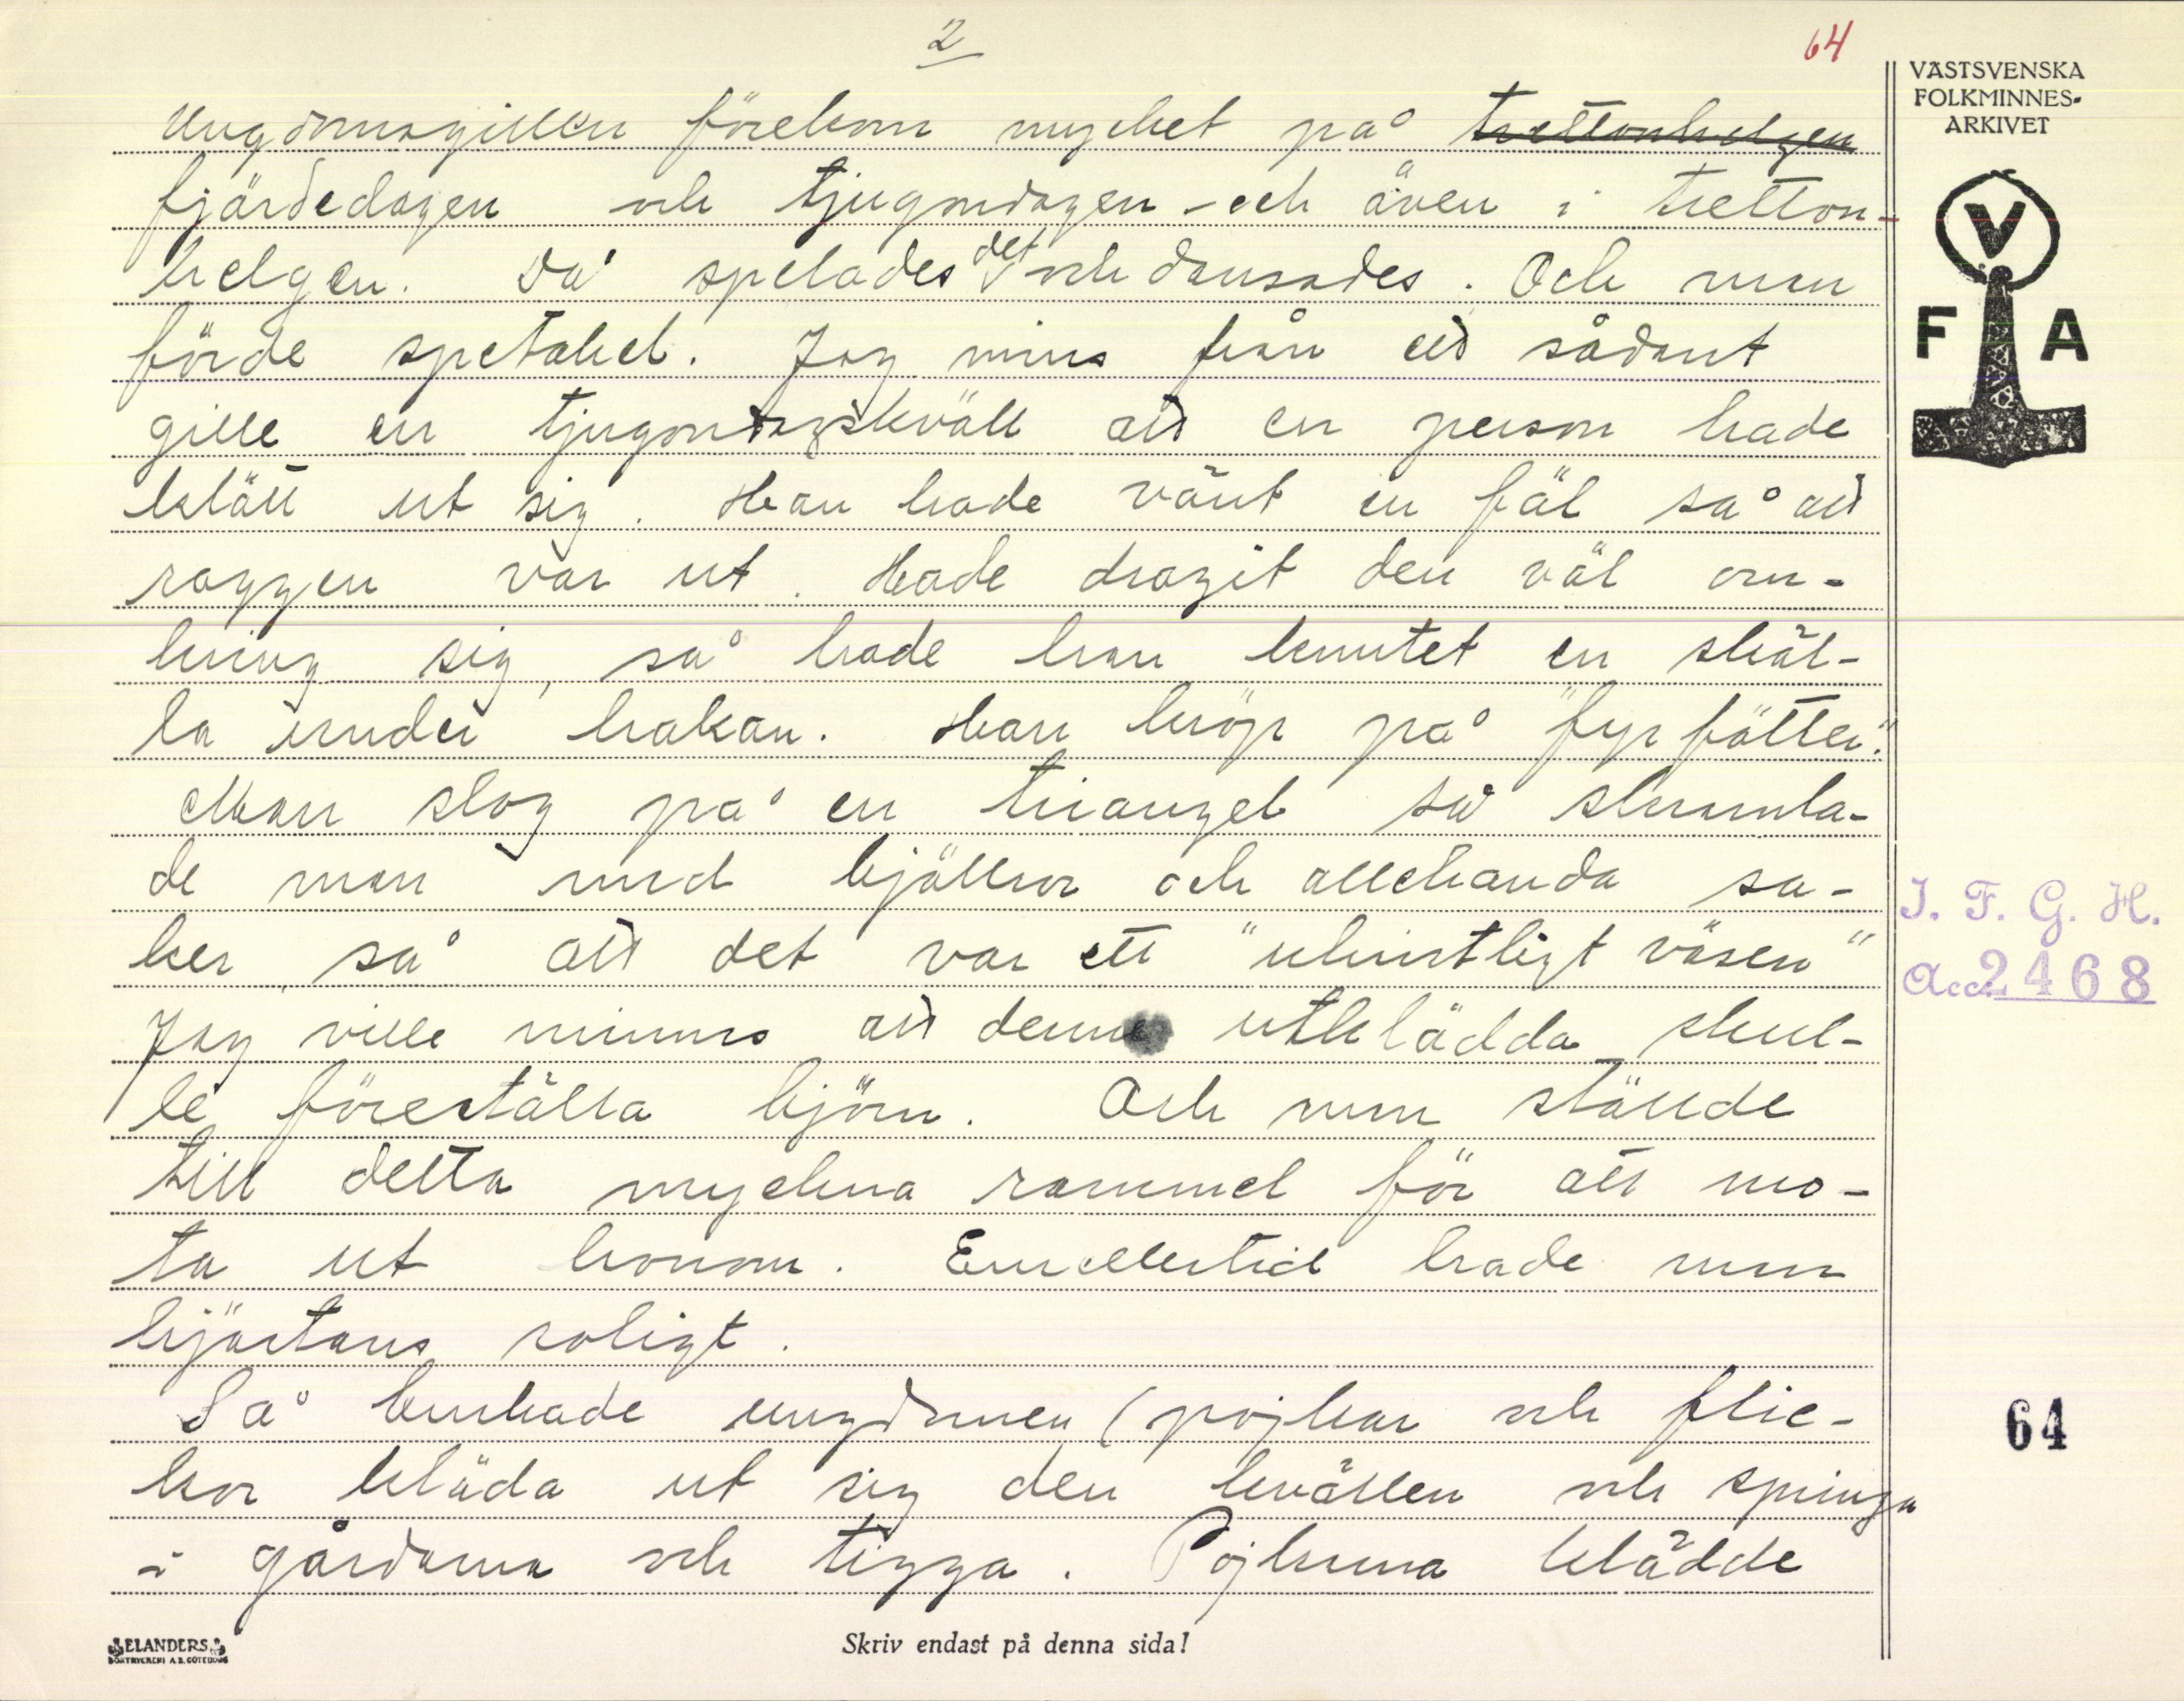 2
64
VÄSTSVENSKA
FOLKMINNES-
ARKIVET
V
F A
Ungdomsgillen förekom mycket på trettonhelgen
fjärdedagen och tjugondagen - och även i tretton-
helgen. Då spelades det och dansades. Och man
förde spetakel. Jag mins från ett sådant
gille en tjugondagskväll att en person hade
klätt ut sig. Han hade vänt en fäl så att
raggen var ut. Hade dragit den väl om-
kring sig, så hade han knutet en skäl-
la under hakan. Han kröp på "fyrfötter".
Man slog på en triangel så skramla-
de man med bjällror och allehanda sa-
ker, så att det var ett "ukristligt väsen"
Jag ville minnas att denne utklädda skul-
le föreställa björn. Och man ställde
till detta myckna rammel för att mo-
ta ut honom. Emellertid hade man
hjärtans roligt.
Så brukade ungdomen (pojkar och flic-
kor kläda ut sig den kvällen och springa
i gårdarna och tigga. Pojkarna klädde
I. F. G. H.
Acc. 2468
64
ELANDERS
BOKTRYCKERI A.B. GÖTEBORG
Skriv endast på denna sida!